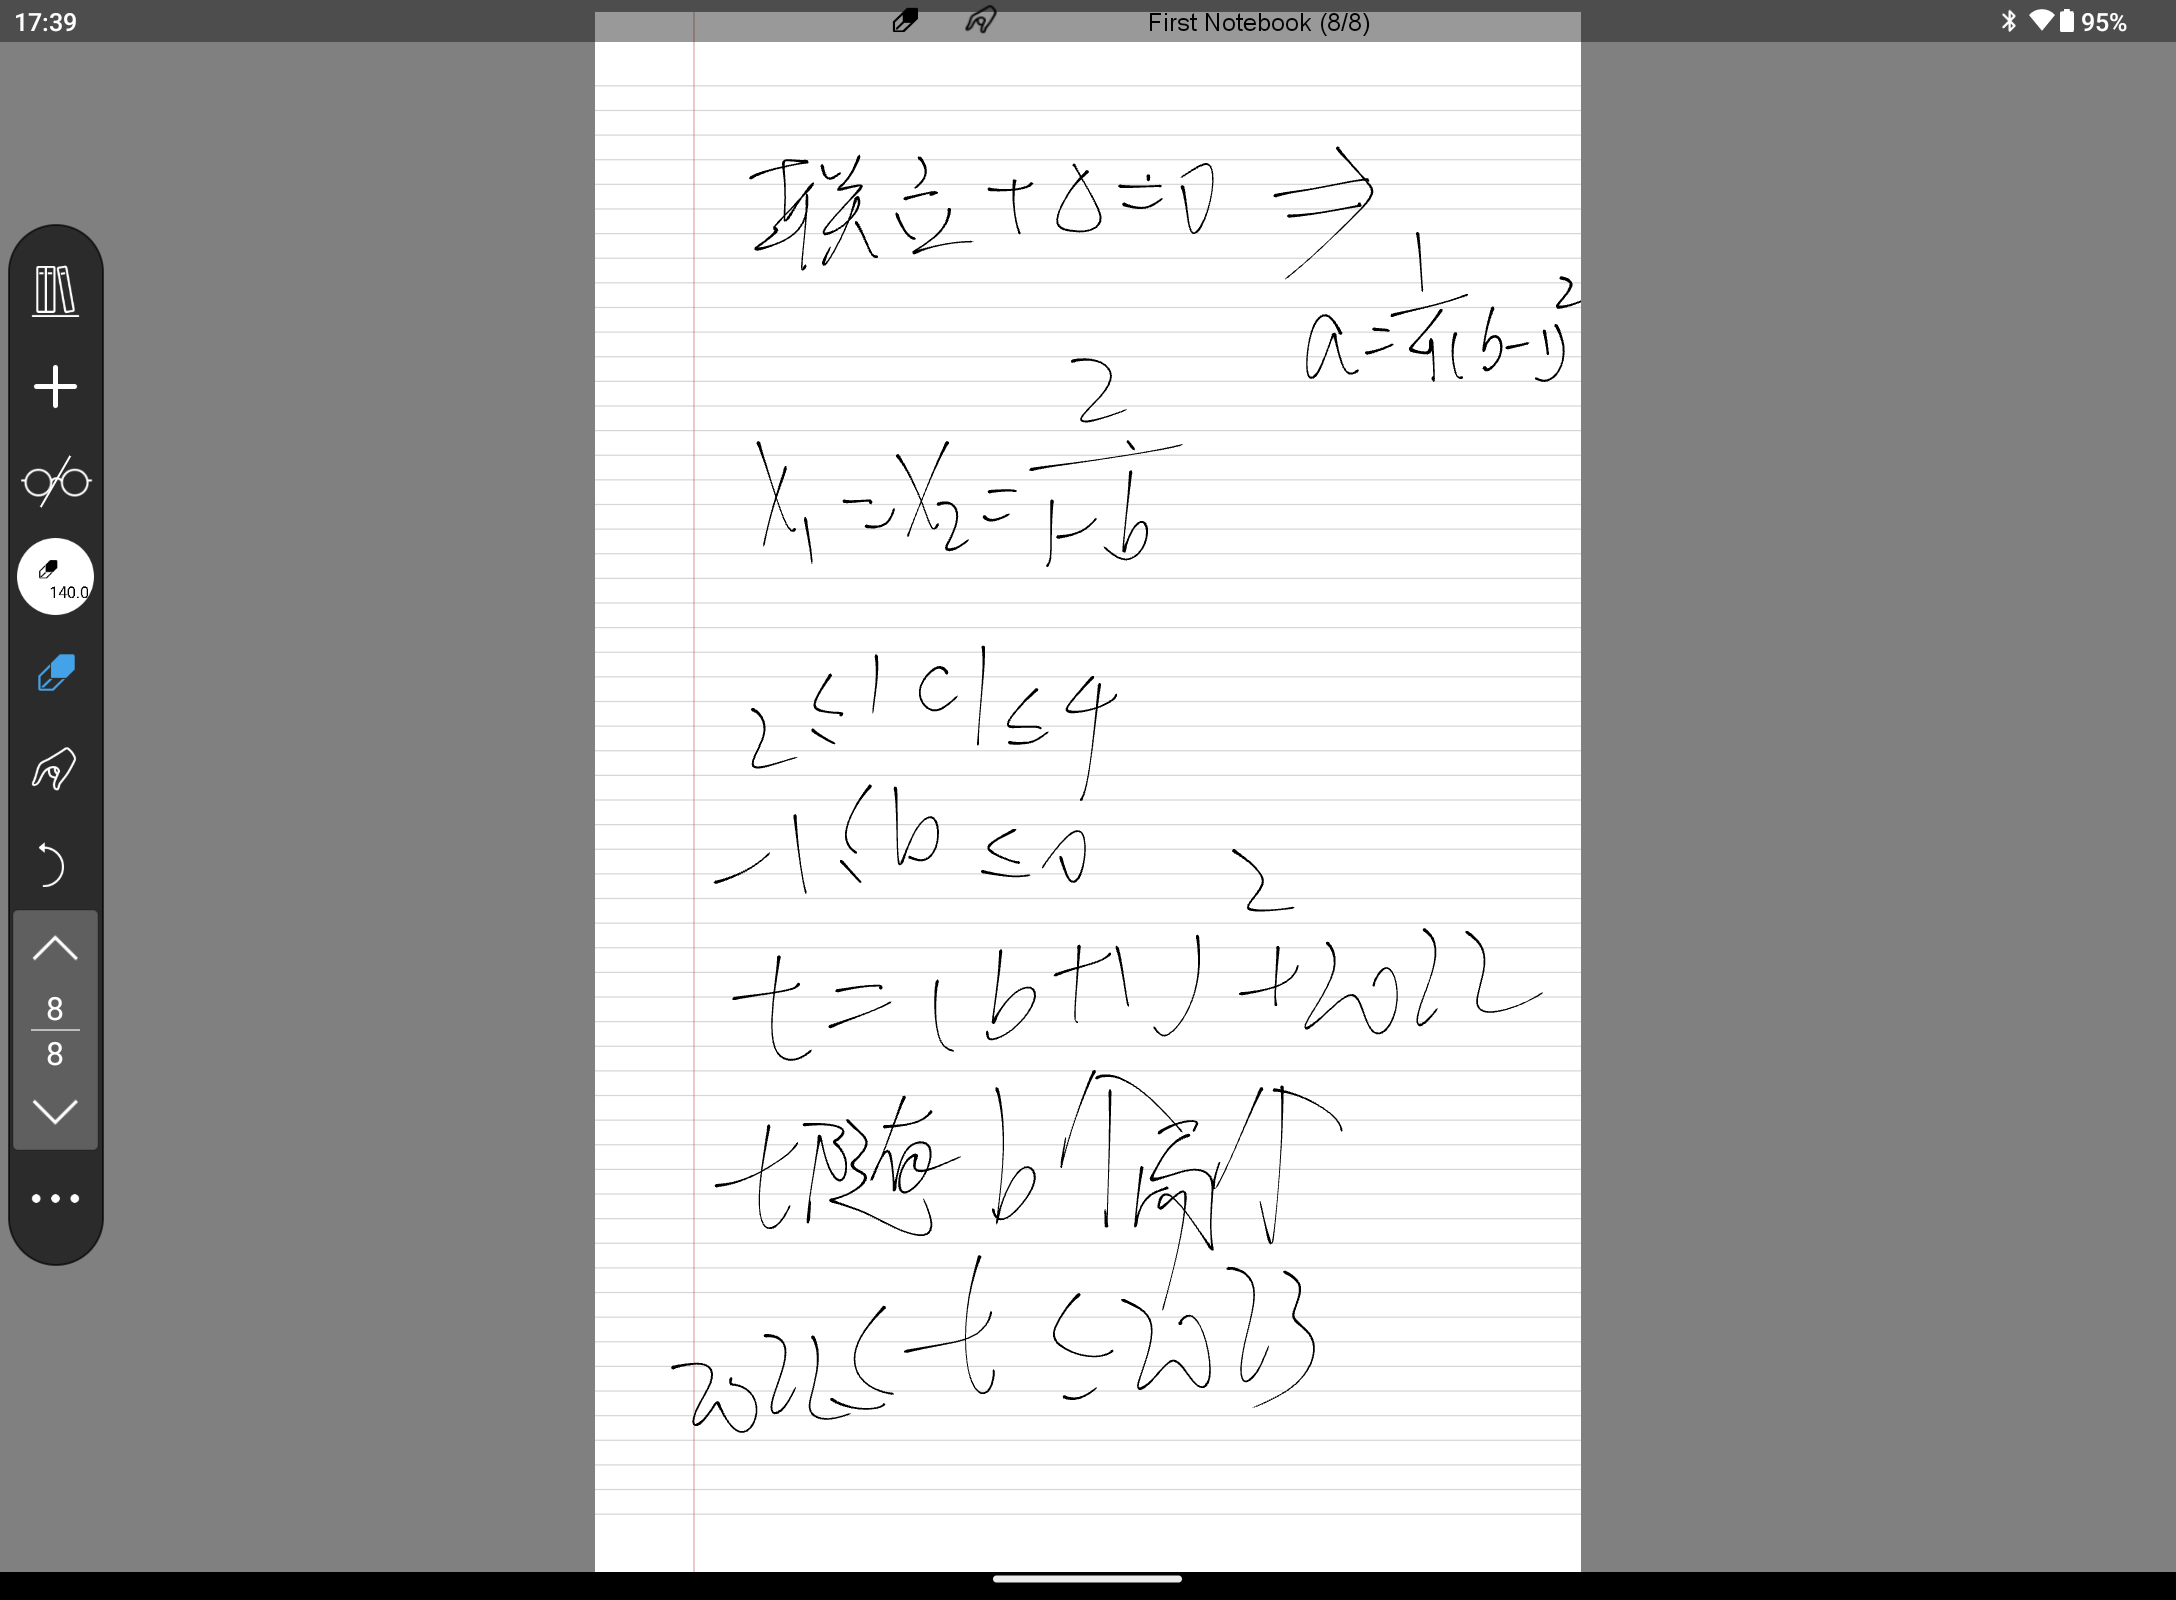 17:39
First Notebook (8/8)
95%
140.0
8
8
联立+Δ=0 ⇒
a=1/4(b-1)²
X₁=X₂=2/(1-b)
2≤|c|≤4
-1≤b≤0
t=(b+1)²+2022
t随b↑高↑
2022≤t≤2023